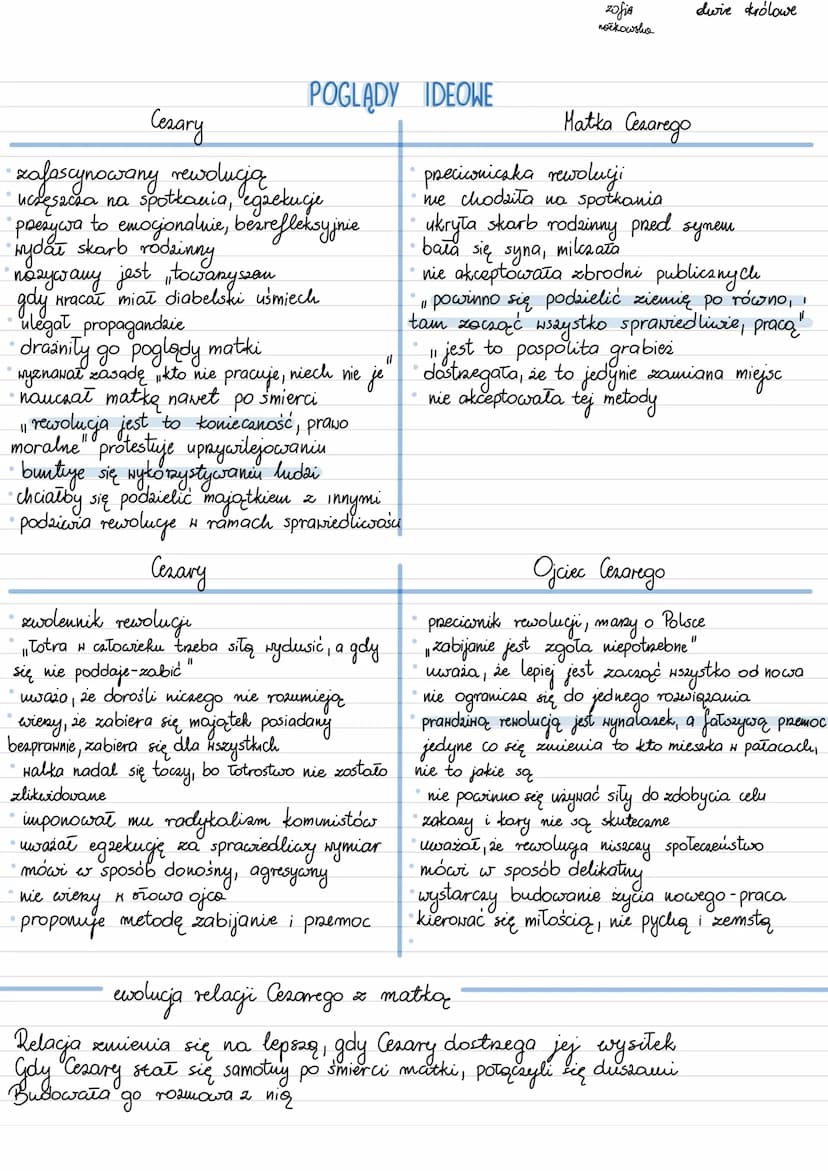 zofia
nałkowska
dwie królowe
POGLĄDY IDEOWE
Cezary
zafascynowany rewolucją
uczęszcza na spotkania, egzekucje
przeżywa to emocjonalnie, bezrefleksyjnie
wydał skarb rodzinny
nazywany jest „towarzyszem
gdy wracał miał diabelski uśmiech
ulegał propagandzie
drażniły go poglądy matki
wyznawał zasadę „kto nie pracuje, niech nie je"
nauczał matkę nawet po śmierci
„rewolucja jest to konieczność, prawo
moralne" protestuje uprzywilejowaniu
buntuje się wykorzystywaniu ludzi
chciałby się podzielić majątkiem z innymi
podziwia rewolucje w ramach sprawiedliwości
Matka Cezarego
przeciwniczka rewolucji
nie chodziła na spotkania
ukryła skarb rodzinny przed synem
bała się syna, milczała
nie akceptowała zbrodni publicznych
„powinno się podzielić ziemię po równo, i
tam zacząć wszystko sprawiedliwie, pracą"
„jest to pospolita grabież
dostrzegała, że to jedynie zamiana miejsc
nie akceptowała tej metody
Cezary
zwolennik rewolucji
„Łotra w człowieku trzeba siłą wydusić, a gdy
się nie poddaje-zabić"
uważa, że dorośli niczego nie rozumieją
wierzy, że zabiera się majątek posiadany
bezprawnie, zabiera się dla wszystkich
walka nadal się toczy, bo łotrostwo nie zostało
zlikwidowane
imponował mu radykalizm komunistów
uważał egzekucję za sprawiedliwy wymiar
mówi w sposób donośny, agresywny
nie wierzy w słowa ojca
proponuje metodę zabijanie i przemoc
Ojciec Cezarego
przeciwnik rewolucji, marzy o Polsce
„zabijanie jest zgoła niepotrzebne"
uważa, że lepiej jest zacząć wszystko od nowa
nie ogranicza się do jednego rozwiązania
prawdziwą rewolucją jest wynalazek, a fałszywą przemoc
jedyne co się zmienia to kto mieszka w pałacach,
nie to jakie są
nie powinno się używać siły do zdobycia celu
zakazy i kary nie są skuteczne
uważał, że rewolucja niszczy społeczeństwo
mówi w sposób delikatny
wystarczy budowanie życia nowego-praca
kierować się miłością, nie pychą i zemstą
ewolucja relacji Cezarego z matką
Relacja zmienia się na lepszą, gdy Cezary dostrzega jej wysiłek
Gdy Cezary stał się samotny po śmierci matki, połączyli się duszami
Budowała go rozmowa z nią